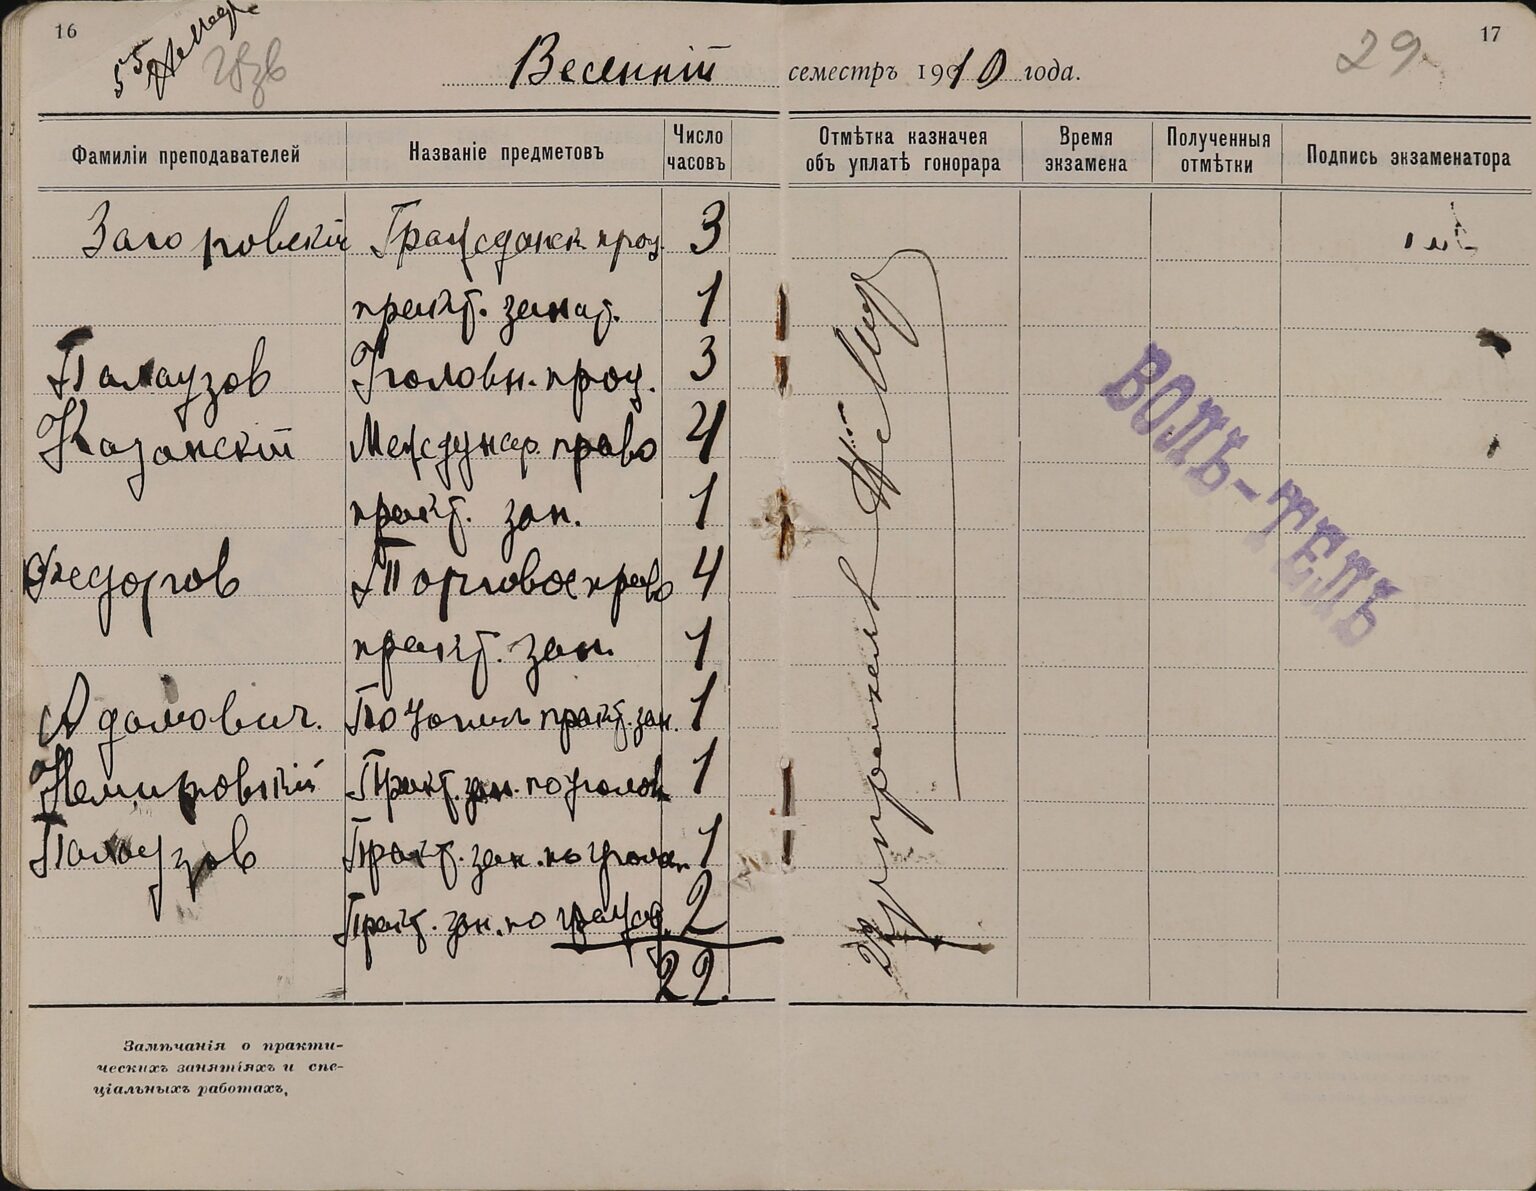 16
17
29
Весенній семестръ 1910 года.
Фамиліи преподавателей Названіе предметовъ Число часовъ Отмѣтка казначея объ уплатѣ гонорара Время экзамена Полученныя отмѣтки Подпись экзаменатора
Загоровскій Гражданск. проц. 3
практ. занят. 1
Палаузов Уголовн. проц. 3
Казанскій Междунар. право 4
практ. зан. 1
Федоров Торговое право 4
практ. зан. 1
Адамович. практ. зан. 1
Немировскій Практ. зан. по уголов 1
Палаузов Практ. зан. по уголов 1
Практ. зан. по гражд. 2
22.
ВОЛЬ-ТЕЛЬ
Замѣчанія о практи-
ческихъ занятіяхъ и спе-
ціальныхъ работахъ,